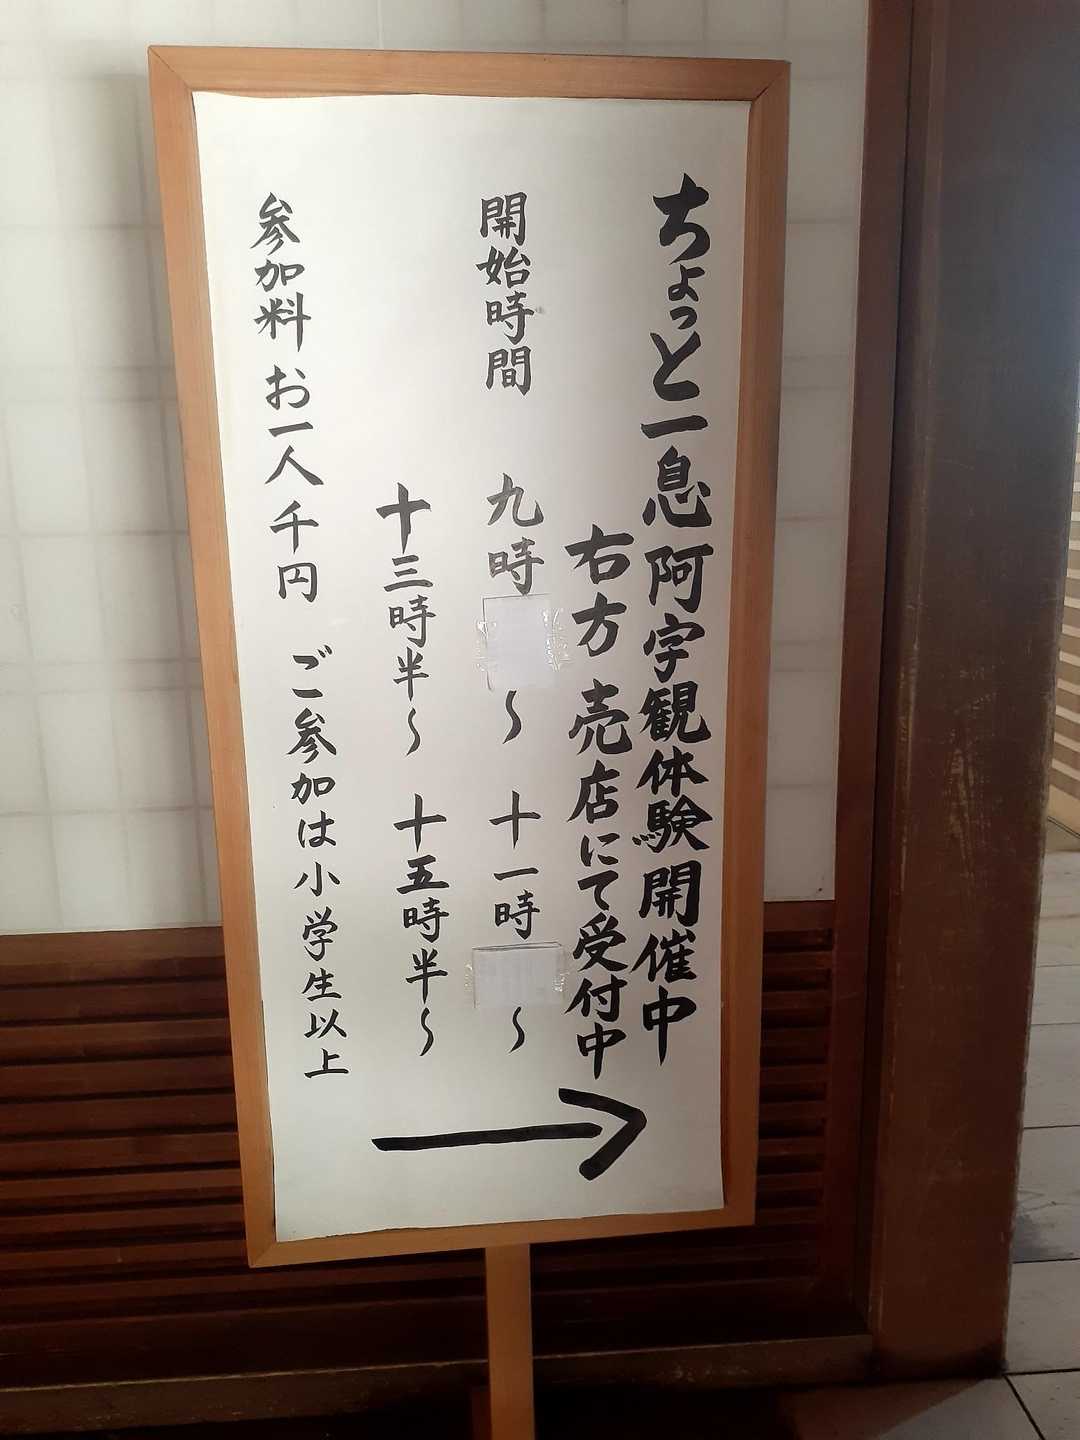 ちょっと一息 阿字観体験開催中
右方 売店にて受付中
開始時間 九時～ 十一時～
十三時半～ 十五時半～
参加料 お一人 千円 ご参加は小学生以上